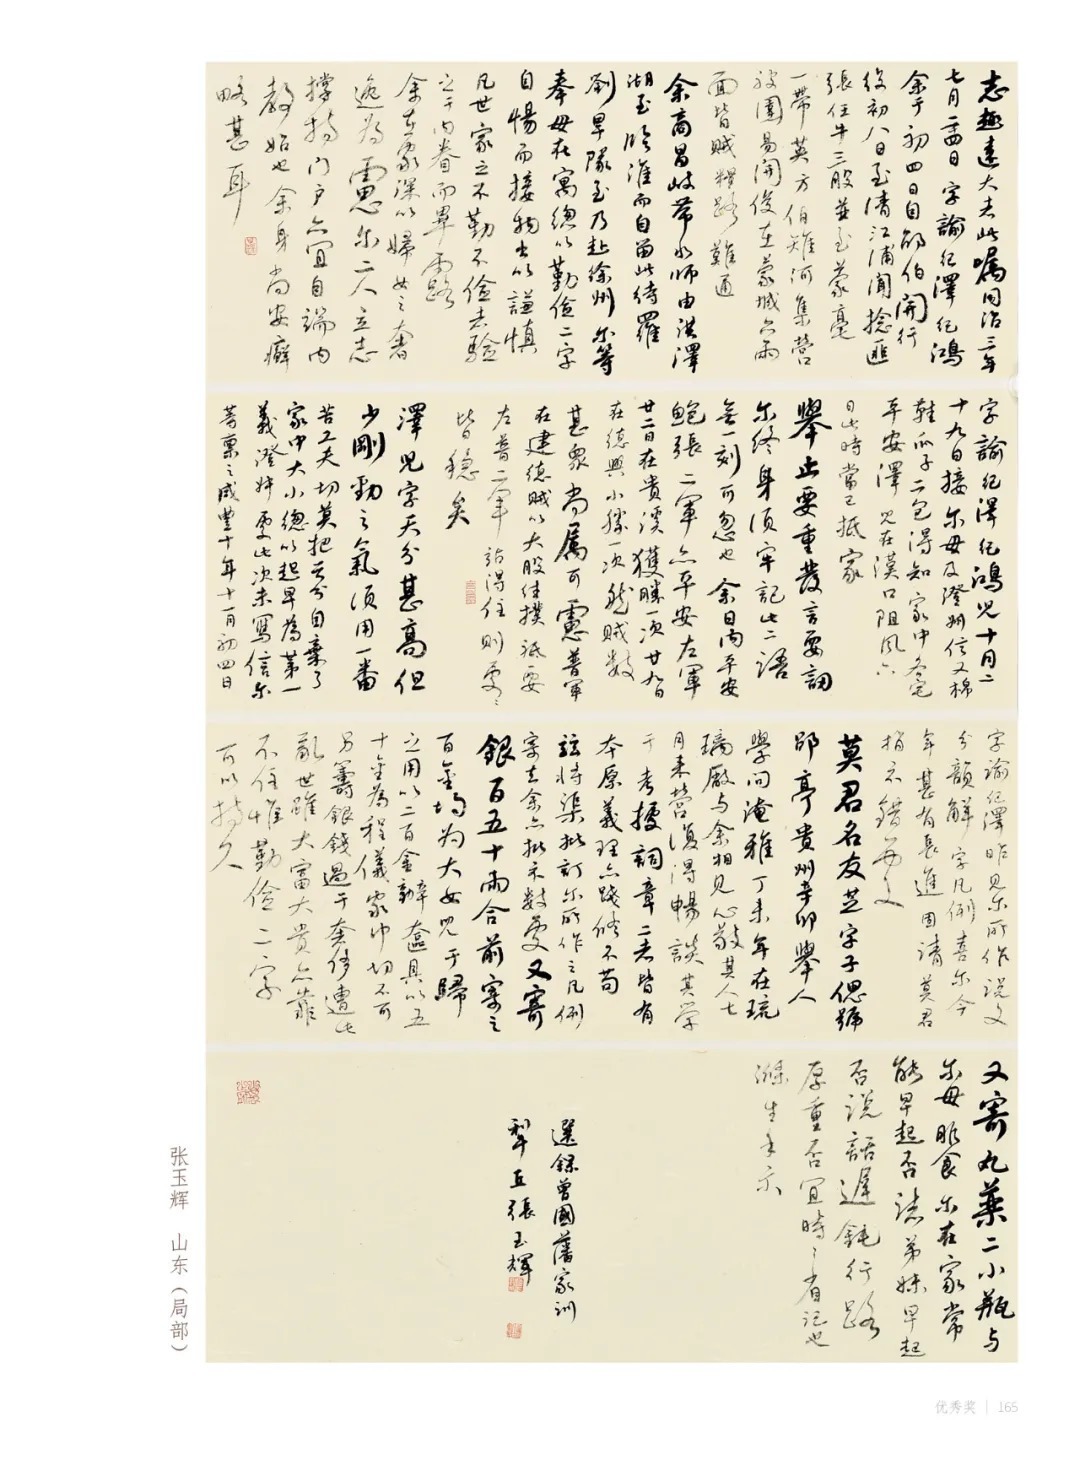 志趣远大去此嘱同治三年
七月二四日 字諭纪澤纪鴻
余于初四日自邵伯開行
後初八日至清江浦聞捻匪
張任牛三股並至蒙亳
一帶英方伯雉河集營
被圍易開俊在蒙城亦兩
面皆贼糧路難通
余商昌岐带水师由洪澤
湖至临淮而自留此待羅
劉旱隊至乃赴徐州尔等
奉母在寓總以勤儉二字
自惕而接物出以謙慎
凡世家之不勤不儉者驗
之于内眷而畢露
余在家深以婦女之奢
逸为慮尔二人立志
撐持门户亦宜自端内
教始也余身尚安癣
略甚耳
字諭纪澤纪鴻兒十月二
十九日接尔母及澄叔信又棉
鞋瓜子二包得知家中各宅
平安澤兒在漢口阻风六
日此時當已抵家
舉止要重發言要訒
尔终身须牢記此二語
无一刻可忽也余日内平安
鲍張二軍亦平安左軍
廿二日在贵溪獲勝一次廿九日
在德興小勝一次然贼数
甚衆尚属可慮普軍
在建德贼以大股往撲祗要
左普二軍站得住则处处
皆穩矣
澤兒字天分甚高但
少剛勁之氣须用一番
苦工夫切莫把天分自棄了
家中大小總以起早為第一
義澄叔處此次未寫信尔
等禀之咸豐十年十一月初四日
字諭纪澤昨见尔所作说文
分韻解字凡例喜尔今
年甚有長進固請莫君
指示錯處
莫君名友芝字子偲號
郘亭贵州辛卯舉人
學问淹雅丁未年在琉
璃厰与余相见心敬其人七
月来营復得暢談其学
于考據詞章二者皆有
本原義理亦践修不苟
兹将渠批訂尔所作之凡例
寄去余亦批示数處又寄
銀百五十两合前寄之
百金均为大女兒于歸
之用以二百金辦奩具以五
十金為程儀家中切不可
另籌銀錢過于奢侈遭此
亂世雖大富大贵亦靠
不住惟勤儉二字
可以持久
又寄丸藥二小瓶与
尔母服食尔在家常
能早起否诸弟妹早起
否说話遲鈍行路
厚重否宜時时省记也
滌生手示
選錄曾國藩家训
犁丘張玉輝
张玉辉 山东（局部）
优秀奖 | 165